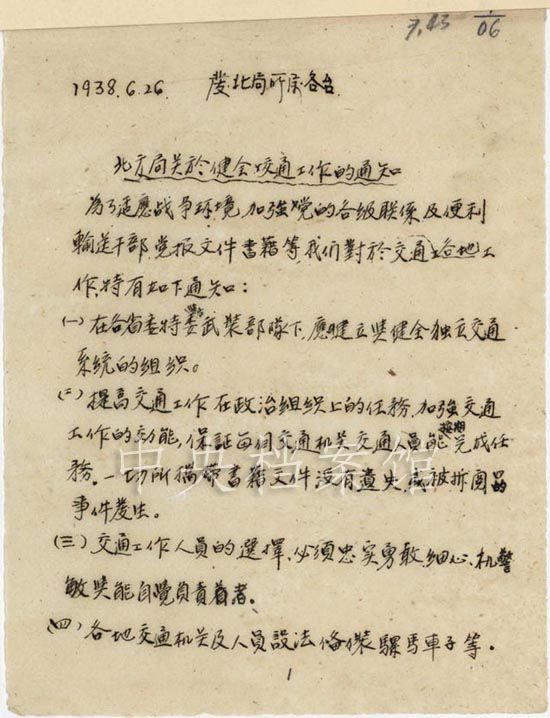 7.43 1/06
1938.6.26. 发北局所属各台.
北方局关於健全交通工作的通知
為了适應战争环境,加強党的各级联係及便利
輸送干部,党报文件書籍等,我们對於交通各地工
作,特有如下通知:
(一)在各省委特委武装部隊下,應建立與健全独立交通
系统的组织。
(二)提高交通工作在政治组织上的任務,加強交通
工作的功能,保証每個交通机关交通員能按期完成任
務,一切所攜帶書籍文件没有遺失,或被拆閱的
事件发生。
(三)交通工作人員的選擇,必須忠实勇敢,細心,机警
敏與能自覺負責者。
(四)各地交通机关及人員設法備裝騾馬車子等.
1
中央档案馆